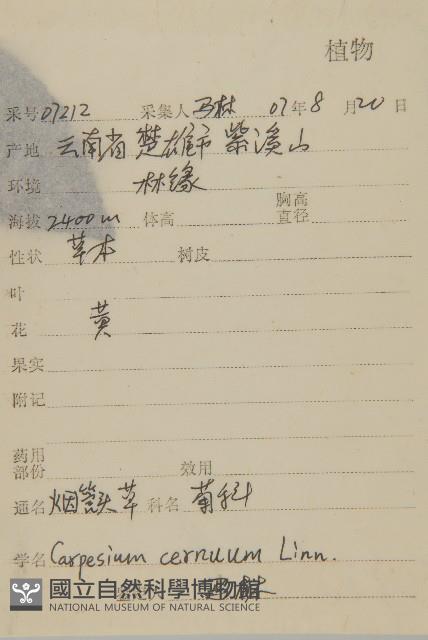 植物
采号 07212 采集人 马林 07年8月20日
产地 云南省楚雄市紫溪山
环境 林缘 胸高
海拔 2400m 体高 直径
性状 草本 树皮
叶
花 黄
果实
附记
药用
部份 效用
通名 烟管头草 科名 菊科
学名 Carpesium cernuum Linn.
國立自然科學博物館
NATIONAL MUSEUM OF NATURAL SCIENCE